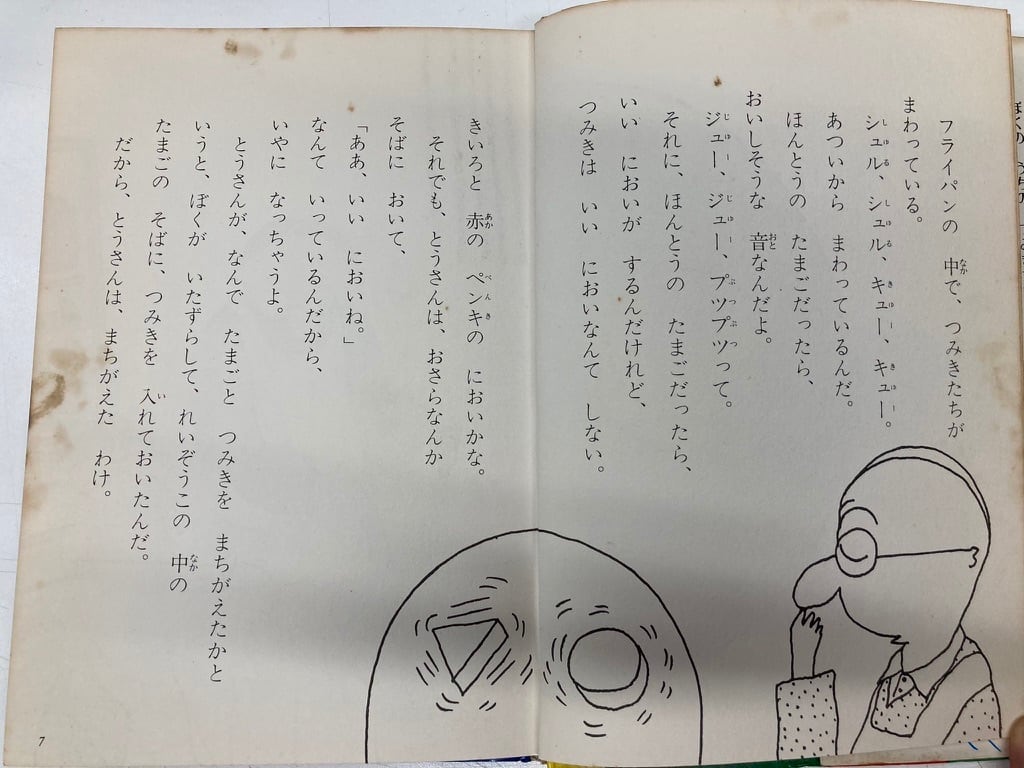 フライパンの　中で、つみきたちが
まわっている。
シュル、シュル、キュー、キュー。
あついから　まわっているんだ。
ほんとうの　たまごだったら、
おいしそうな　音なんだよ。
ジュー、ジュー、プツプツって。
それに、ほんとうの　たまごだったら、
いい　においが　するんだけれど、
つみきは　いい　においなんて　しない。
きいろと　赤の　ペンキの　においかな。
それでも、とうさんは、おさらなんか
そばに　おいて、
「ああ、いい　においね。」
なんて　いっているんだから、
いやに　なっちゃうよ。
とうさんが、なんで　たまごと　つみきを　まちがえたかと
いうと、ぼくが　いたずらして、れいぞうこの　中の
たまごの　そばに、つみきを　入れておいたんだ。
だから、とうさんは、まちがえた　わけ。
7